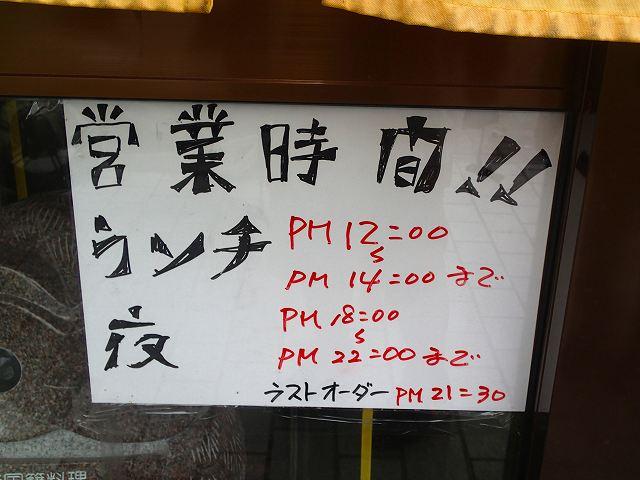 営業時間!!
ランチ PM 12=00
〜
PM 14=00 まで
夜 PM 18=00
〜
PM 22=00 まで
ラストオーダー PM 21=30
国籍料理